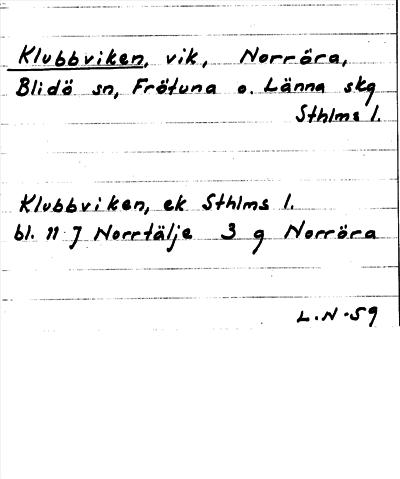 Klubbviken, vik, Norröra,
Blidö sn, Frötuna o. Länna skg
Sthlms l.
Klubbviken, ek Sthlms l.
bl. 11 J Norrtälje 3 g Norröra
L.N-59